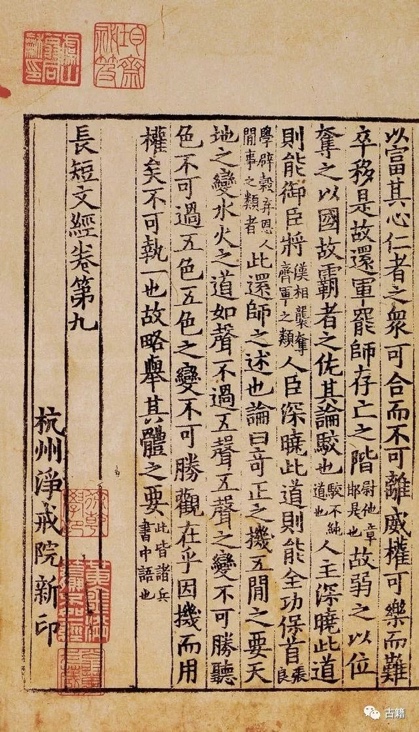 以富其心仁者之衆可合而不可離威權可樂而難
卒移是故還軍罷師存亡之階尉他章邯是也故弱之以位
奪之以國故霸者之佐其論駮也駮不純道也人主深曉此道
則能御臣將漢相襲奪齊軍之類人臣深曉此道則能全功保首張良
學辟穀弃人閒事之類者此還師之述也論曰竒正之機五閒之要天
地之變水火之道如聲不過五聲五聲之變不可勝聽
色不可過五色五色之變不可勝觀在乎因機而用
權矣不可執一也故略舉其體之要此皆諸兵書中語也
長短文經卷第九
杭州淨戒院新印
古籍